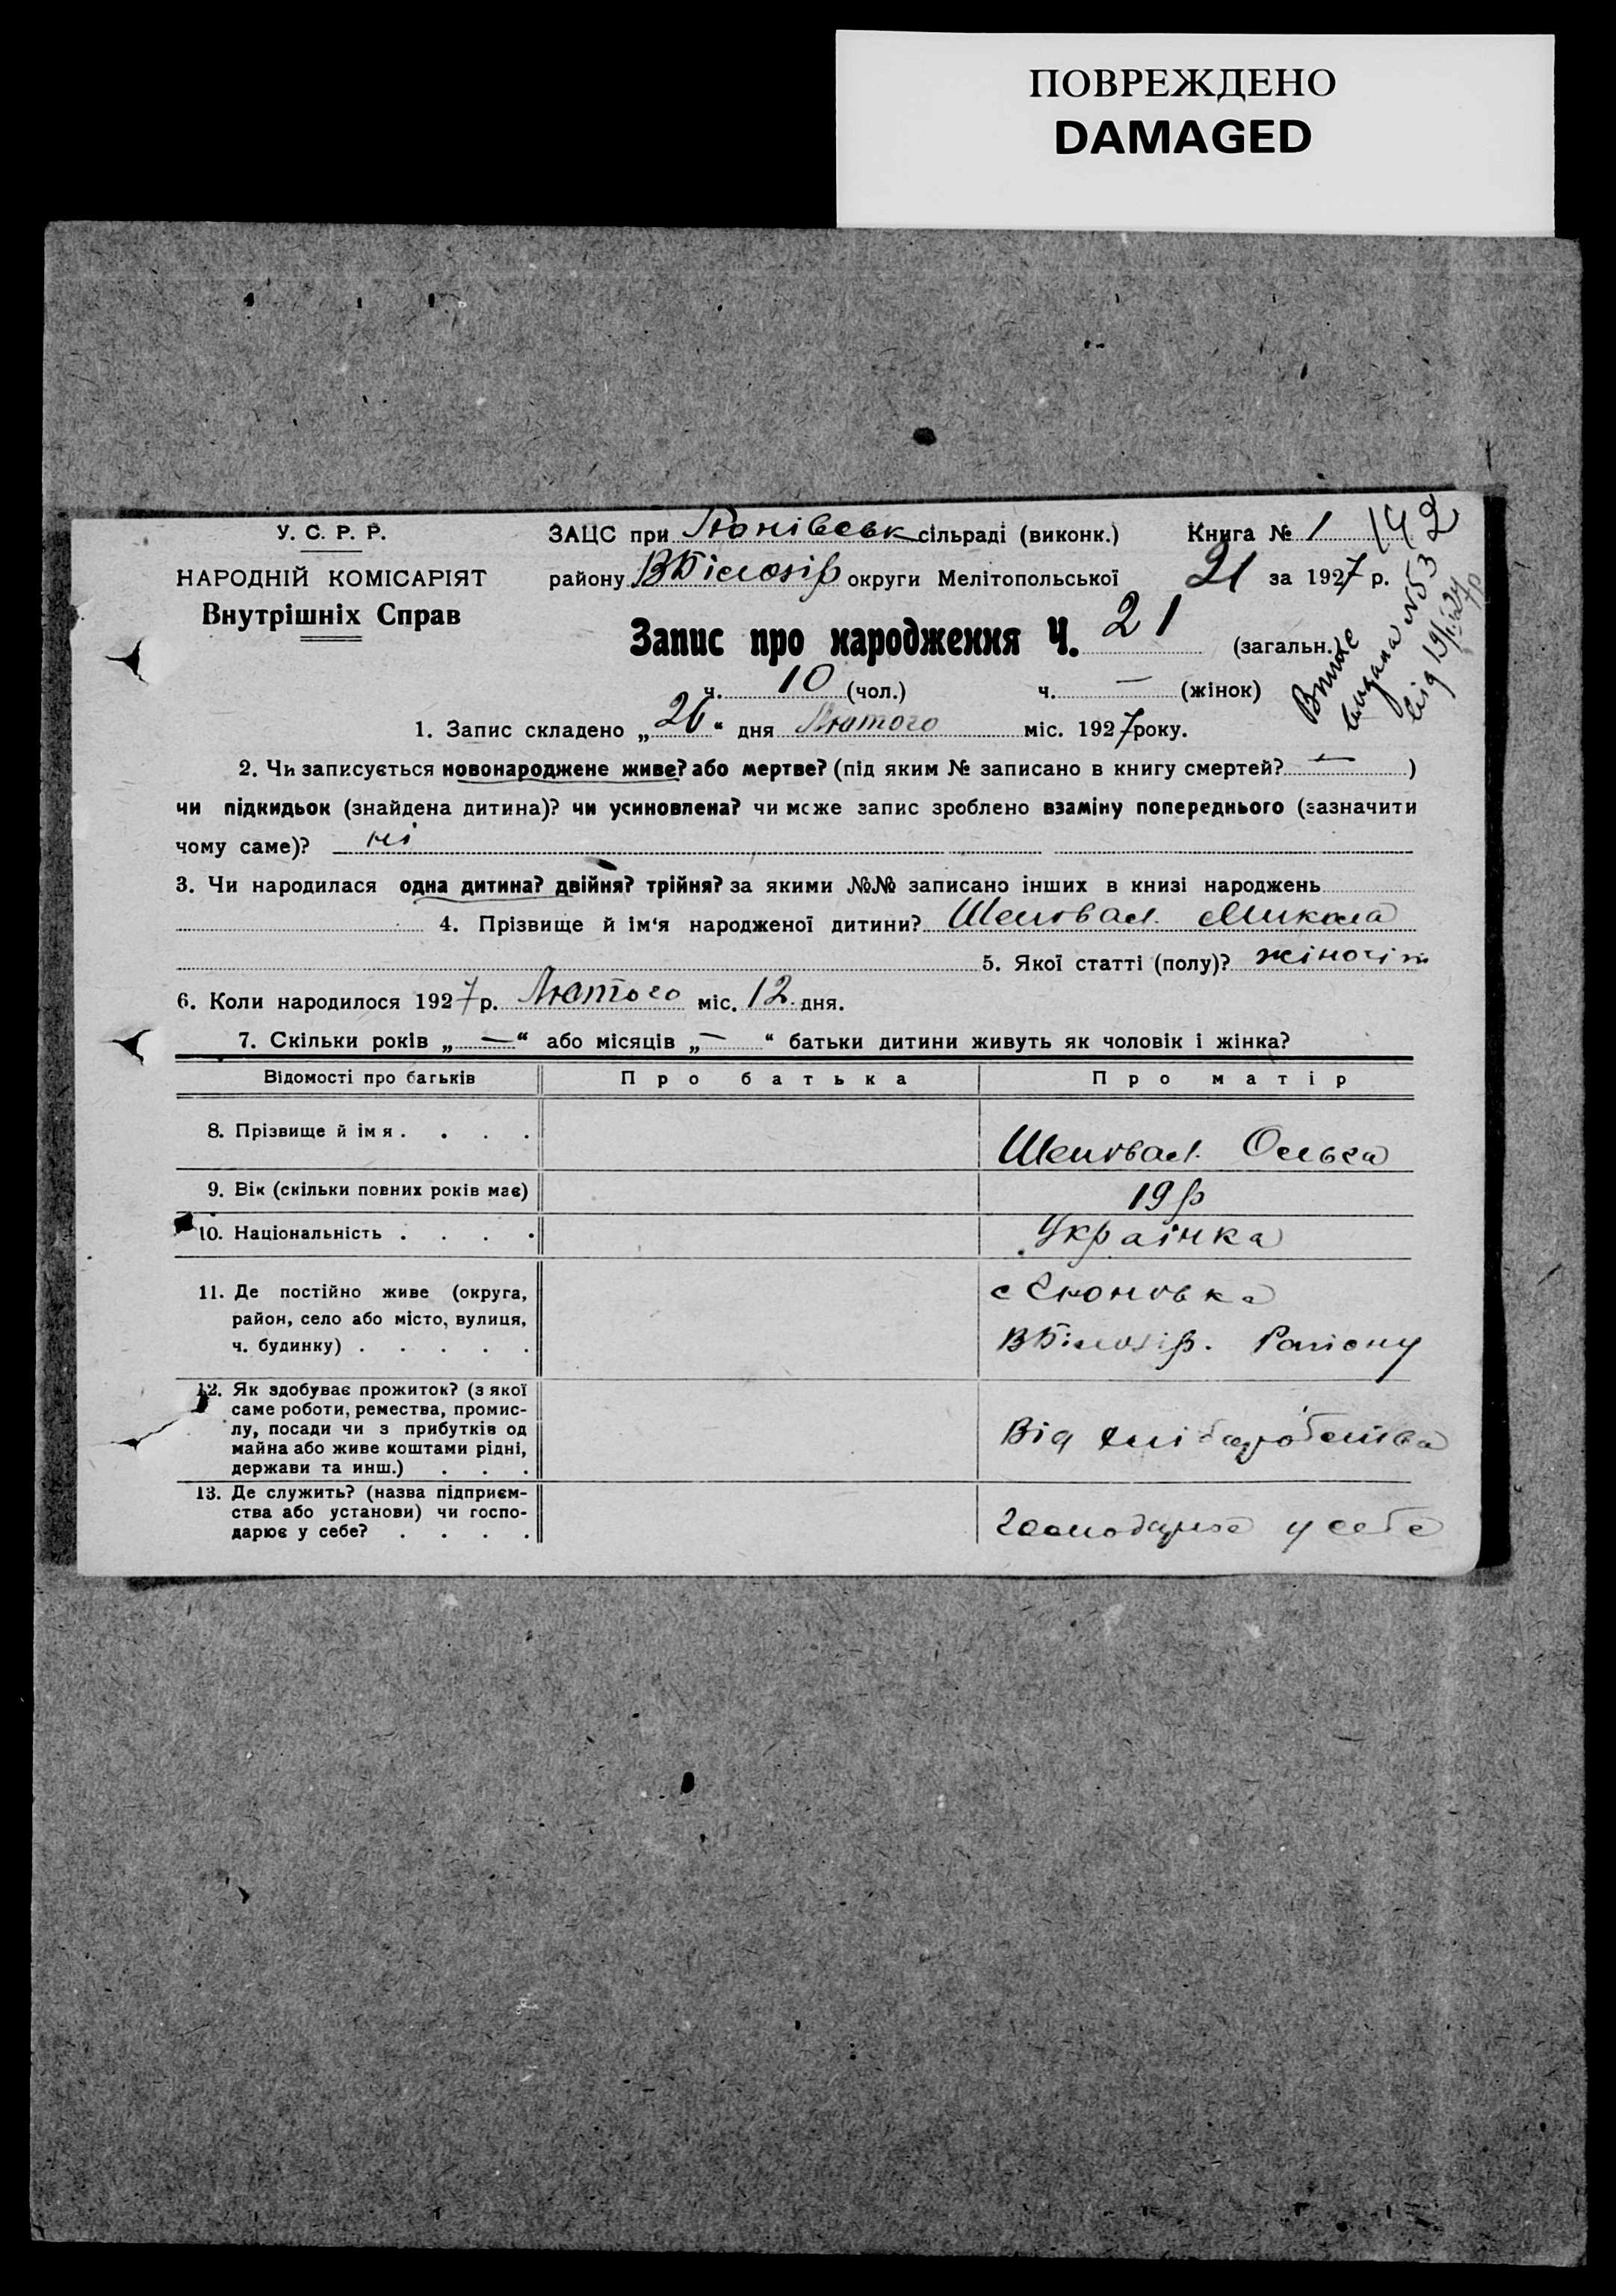 ПОВРЕЖДЕНО
DAMAGED
У. С. Р. Р.
НАРОДНІЙ КОМІСАРІЯТ
Внутрішніх Справ
ЗАЦС при сільраді (виконк.)
Книга № 1
142
району ВБілозір округи Мелітопольської
21 за 1927 р.
Запис про народження Ч. 21 (загальн.)
ч. 10 (чол.) ч. — (жінок)
видана №53
від 19/
1. Запис складено „26“ дня Лютого міс. 1927 року.
2. Чи записується новонароджене живе? або мертве? (під яким № записано в книгу смертей? — )
чи підкидьок (знайдена дитина)? чи усиновлена? чи може запис зроблено взаміну попереднього (зазначити
чому саме)? ні
3. Чи народилася одна дитина? двійня? трійня? за якими №№ записано інших в книзі народжень
4. Прізвище й ім‘я народженої дитини? Шеповал Микола
5. Якої статті (полу)? жіночій
6. Коли народилося 1927 р. Лютого міс. 12 дня.
7. Скільки років „ — “ або місяців „ — “ батьки дитини живуть як чоловік і жінка?
Відомості про батьків
Про батька
Про матір
8. Прізвище й імя . . . .
Шеповал Ольга
9. Вік (скільки повних років має)
19 р
10. Національність . . . .
Українка
11. Де постійно живе (округа,
район, село або місто, вулиця,
ч. будинку) . . . . .
с
ВБілозір. Району
12. Як здобуває прожиток? (з якої
саме роботи, ремества, промис-
лу, посади чи з прибутків од
майна або живе коштами рідні,
держави та инш.) . . .
Від хліборобства
13. Де служить? (назва підприєм-
ства або установи) чи госпо-
дарює у себе? . . . .
господарює у себе